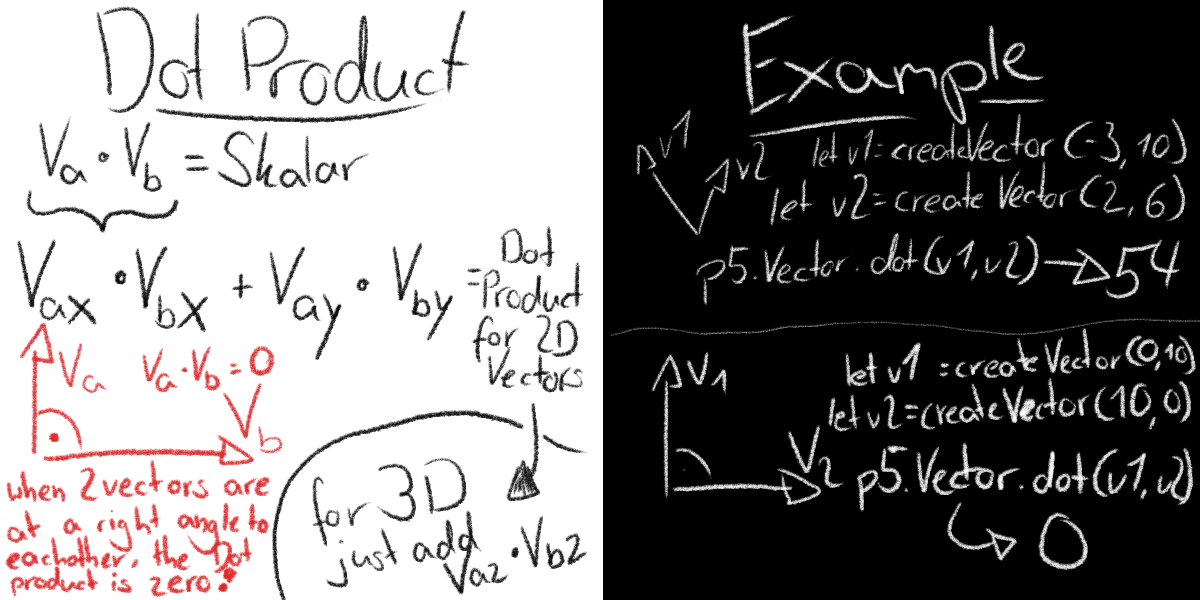 Dot Product
Va · Vb = Skalar
Vax · Vbx + Vay · Vby = Dot
Product
for 2D
Vectors
Va
Va · Vb = 0
Vb
when 2 vectors are
at a right angle to
eachother, the Dot
product is zero!
for 3D
just add
Vaz · Vbz
Example
v1
v2
let v1 = createVector (-3, 10)
let v2 = create Vector (2, 6)
p5.Vector.dot(v1, v2) → 54
V1
V2
let v1 = create Vector (0, 10)
let v2 = create Vector (10, 0)
p5.Vector.dot(v1, v2)
0